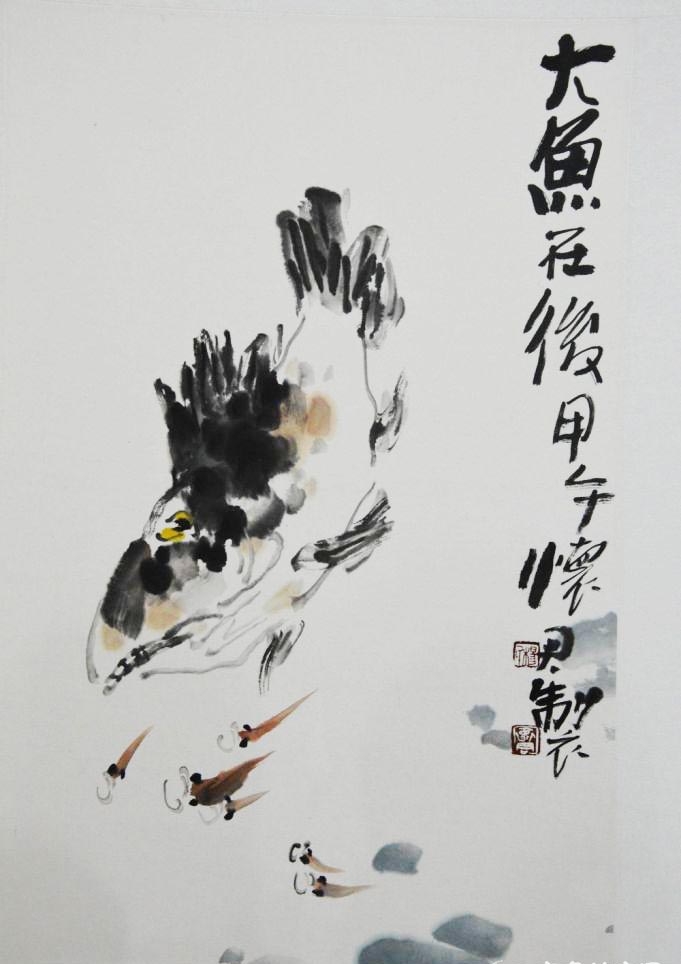 大魚在後甲午懷尹製